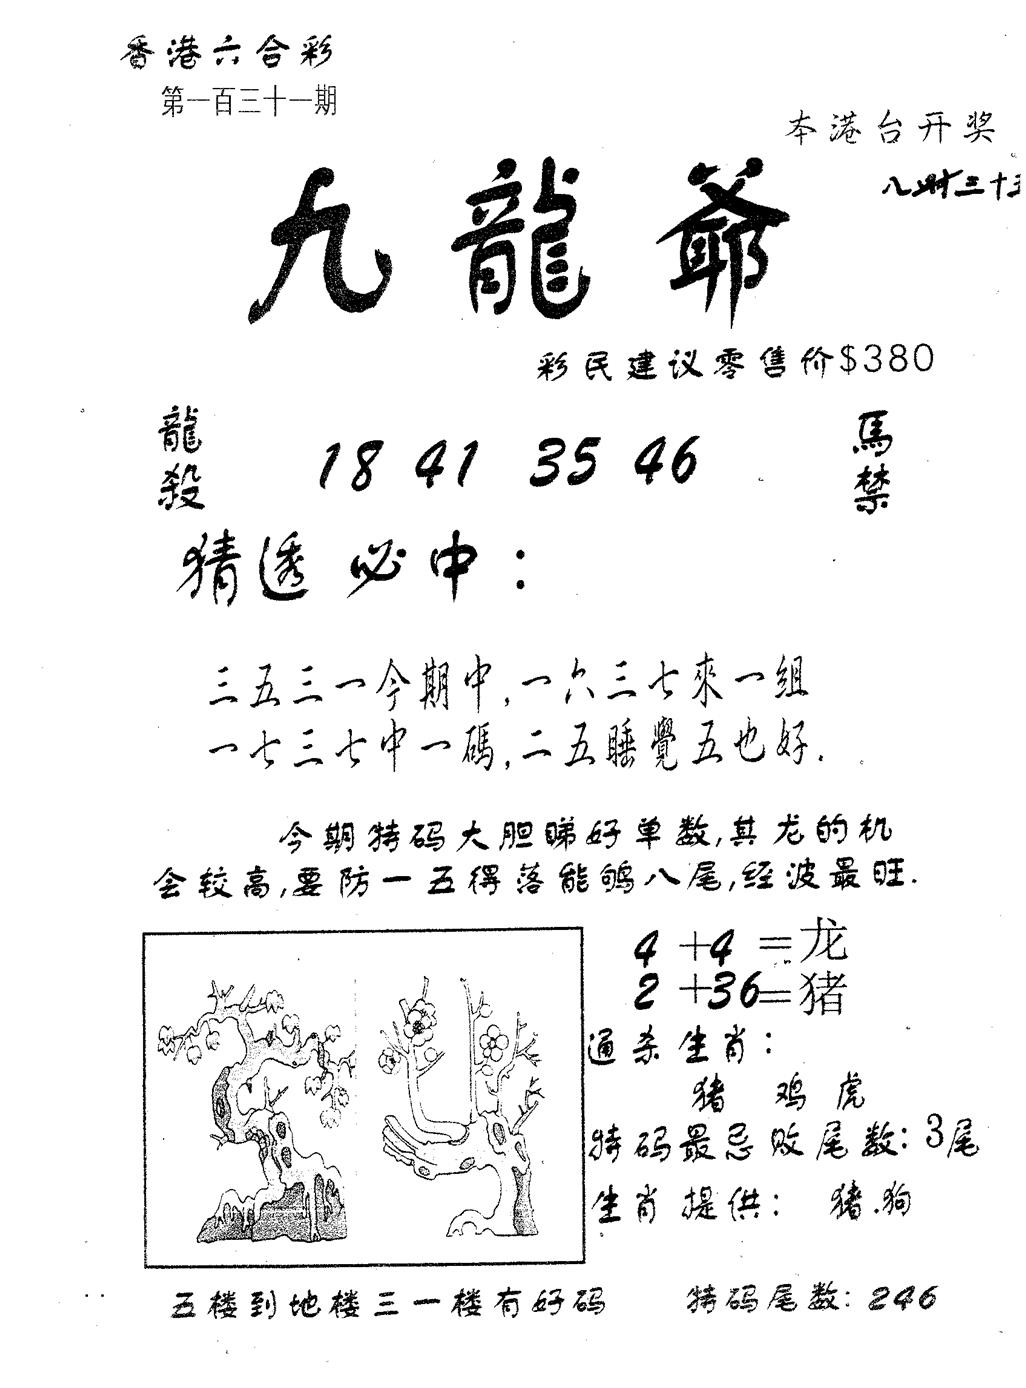 香港六合彩
第一百三十一期
本港台开奖
八时三十五
九龍爺
彩民建议零售价$380
龍殺
18 41 35 46
馬禁
猜透必中：
三五三一今期中,一六三七來一组
一七三七中一碼,二五睡覺五也好.
今期特码大胆睇好单数,其龙的机
会较高,要防一五得落能鸲八尾,经波最旺.
4+4=龙
2+36=猪
通杀生肖：
猪 鸡 虎
特码最忌败尾数：3尾
生肖提供： 猪.狗
五楼到地楼三一楼有好码
特码尾数：246